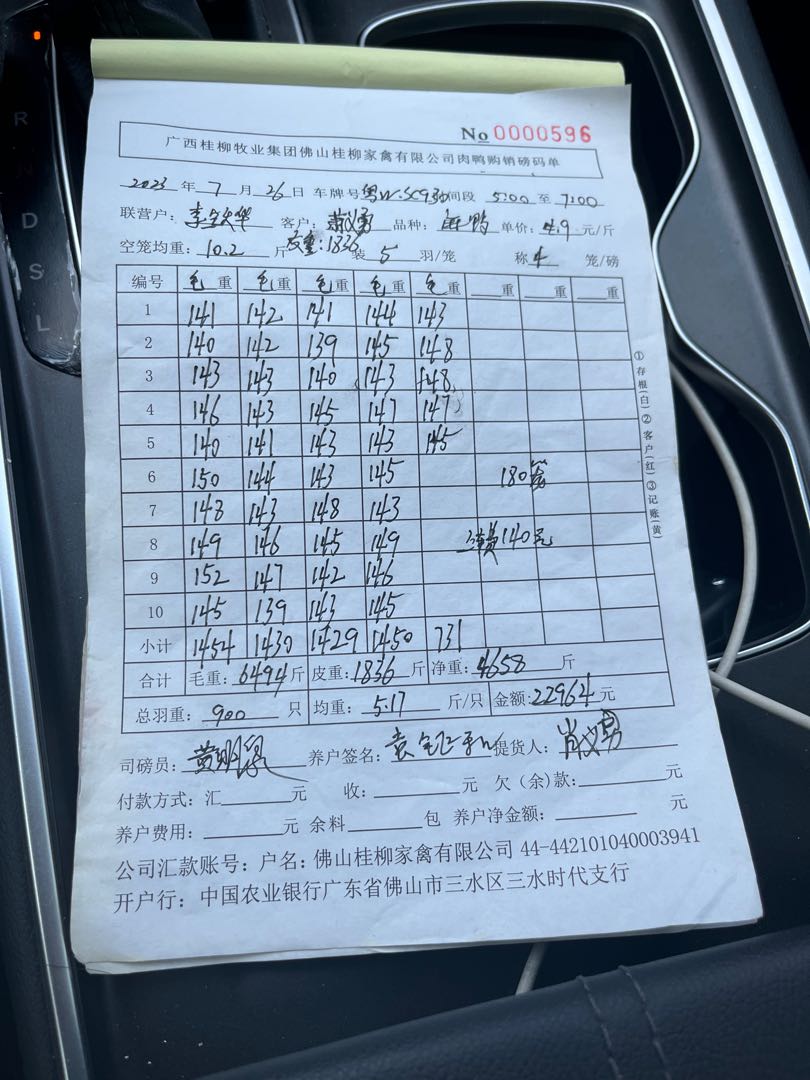 R
N
D
S
L
No 0000596
广西桂柳牧业集团佛山桂柳家禽有限公司肉鸭购销磅码单
2023 年 7 月 26 日 车牌号 粤W· 间段 5:00 至 7:00
联营户： 客户： 勇 品种： 鸭 单价：4.9 元/斤
空笼均重：10.2 斤 皮重：1836 装 5 羽/笼 称 4 笼/磅
编号 毛重 毛重 毛重 毛重 毛重 重 重 重
1 141 142 141 144 143
2 140 142 139 145 148
3 143 143 140 143 148
4 146 143 145 147 147
5 140 141 143 143 145
6 150 144 143 145 180笼
7 148 143 148 143
8 149 146 145 149 140元
9 152 147 142 146
10 145 139 143 145
小计 1454 1430 1429 1450 731
合计 毛重：6494斤 皮重：1836 斤 净重：4658 斤
总羽重：900 只 均重：5.17 斤/只 金额：22964 元
司磅员：黄明 养户签名：袁 提货人：肖 勇
付款方式：汇 元 收： 元 欠（余）款： 元
养户费用： 元 余料 包 养户净金额： 元
公司汇款账号：户名：佛山桂柳家禽有限公司 44-442101040003941
开户行：中国农业银行广东省佛山市三水区三水时代支行
①存根(白)②客户(红)③记账(黄)